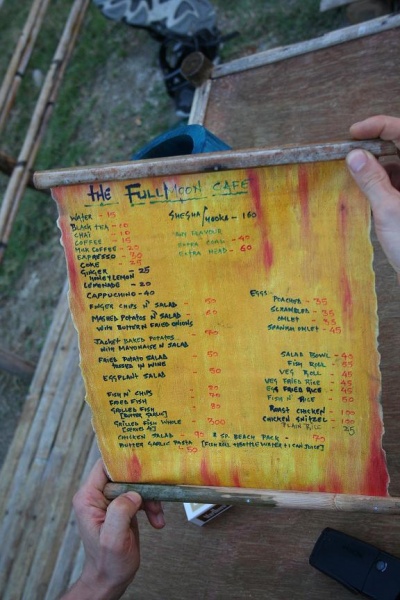 THE FULLMOON CAFE
WATER - 15
BLACK TEA - 10
CHAI - 10
COFFEE - 15
MILK COFFEE - 20
ESPRESSO - 30
COKE - 25
GINGER - 25
HONEY LEMON
LEMONADE - 20
CAPPUCHINO - 40
SHESHA / HOOKA - 160
ANY FLAVOUR
EXTRA COAL - 40
EXTRA HEAD - 60
FINGER CHIPS N' SALAD - 50
MASHED POTATOES N' SALAD - 50
WITH BUTTER N FRIED ONIONS
JACKET BAKED POTATOES
WITH MAYONAISE N SALAD
FRIED POTATO SALAD - 50
EGGPLANT SALAD - 50
FISH N' CHIPS
FRIED FISH
GRILLED FISH
GRILLED FISH WHOLE - 300
CHICKEN SALAD - 90
BUTTER GARLIC PASTA - 50
EGGS
POACHER - 35
SCRAMBLER - 35
OMLET - 35
SPANISH OMLET - 45
SALAD BOWL - 45
FISH ROLL - 55
VEG ROLL - 45
VEG FRIED RICE - 45
EGG FRIED RICE - 45
FISH N' RICE - 50
ROAST CHICKEN - 100
CHICKEN SNITZEL - 100
PLAIN RICE - 25
BEACH PACK - 70